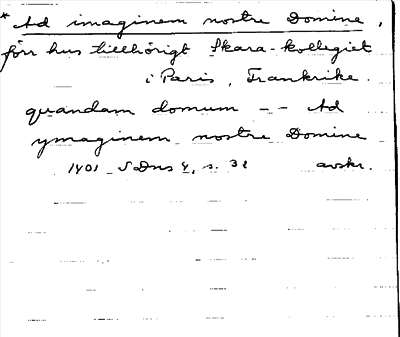 * Ad imaginem nostre Domine,
förr hus tillhörigt Skara-kollegiet
i Paris, Frankrike.
quandam domum -- Ad
ymaginem nostre Domine
1401 SDns 4, s. 32 avskr.